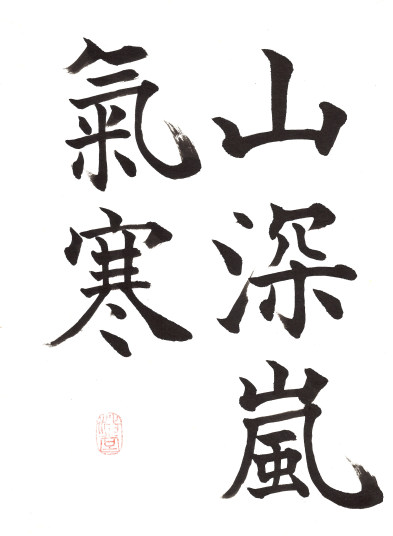 山深嵐
氣寒